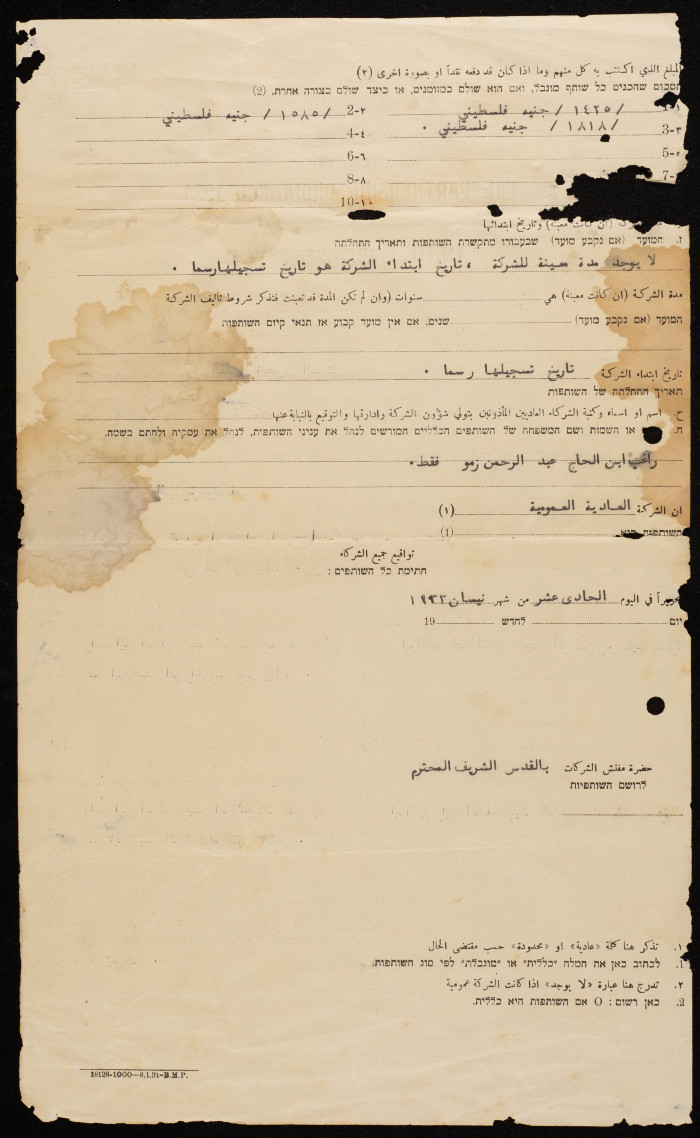 المبلغ الذي اكتتب به كل منهم وما اذا كان قد دفعه نقداً او بصورة اخرى (٢)
הסכום שהכניס כל שותף מוגבל, ואם הוא שולם במזומנים, או כיצד שולם בצורה אחרת. (2)
1-١ /١٤٢٥/ جنيه فلسطيني 2-٢ /١٥٨٥/ جنيه فلسطيني
3-٣ /١٨١٨/ جنيه فلسطيني . 4-٤
5-٥ 6-٦
7- 8-٨
10-١٠
(ان كانت معينة) وتاريخ ابتدائها
ז. המועד (אם נקבע מועד) שבעבורו מתקשרת השותפות ותאריך התחלתה
لا يوجد مدة معينة للشركة ، تاريخ ابتداء الشركة هو تاريخ تسجيلها رسما .
مدة الشركة (ان كانت معينة) هي سنوات (وان لم تكن المدة قد تعينت فتذكر شروط تأليف الشركة
המועד (אם נקבע מועד) שנים, אם אין מועד קבוע אז תנאי קיום השותפות
تاريخ ابتداء الشركة تاريخ تسجيلها رسما .
תאריך התחלתה של השותפות
ح. اسم او اسماء وكنية الشركاء العاديين المأذونين بتولي شؤون الشركة وادارتها والتوقيع بالنيابة عنها
ח. או השמות ושם המשפחה של השותפים הכלליים המורשים לנהל את עניני השותפות, לנהל את עסקיה ולחתם בשמה.
راغب ابن الحاج عبد الرحمن زمو فقط.
ان الشركة العادية العمومية (١)
השותפות היא (1)
تواقيع جميع الشركاء
חתימת כל השותפים :
تحريراً في اليوم الحادى عشر من شهر نيسان ١٩٣٣
יום לחדש 19
حضرة مفتش الشركات بالقدس الشريف المحترم
לרושם השותפויות
١. تذكر هنا كلمة «عادية» او «محدودة» حسب مقتضى الحال
1. לכתוב כאן את המלה "כללית" או "מוגבלת" לפי סוג השותפות.
٢. تدرج هنا عبارة «لا يوجد» اذا كانت الشركة عمومية
2. כאן רשום : O אם השותפות היא כללית.
18128-1000—8.1.31-B.M.P.